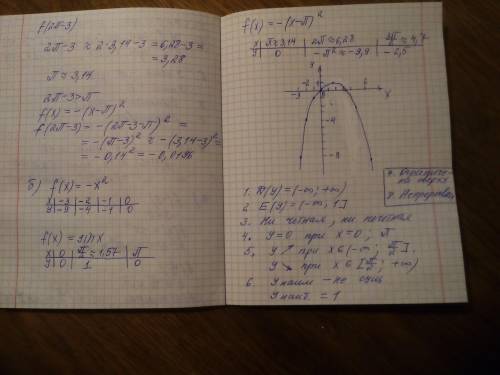 f(2π-3)
2π-3 ≈ 2·3,14-3 = 6,28-3 =
= 3,28
π ≈ 3,14
2π-3>π
f(x) = -(x-π)²
f(2π-3) = -(2π-3-π)² =
= -(π-3)² ≈ -(3,14-3)² =
= -0,14² = -0,0196
б) f(x) = -x²
x | -3 | -2 | -1 | 0
y | -9 | -4 | -1 | 0
f(x) = sin x
x | 0 | π/2 ≈ 1,57 | π
y | 0 | 1 | 0
f(x) = -(x-π)²
x | π ≈ 3,14 | 2π ≈ 6,28 | 3π/2 ≈ 4,7
y | 0 | -π² ≈ -9,9 | -2,5
y
x
-3
6
-2
-4
-8
1. D(y) = (-∞; +∞)
2. E(y) = (-∞; 1]
3. Ни четная, ни нечетная
4. y=0 при x=0; π
5. y ↗ при x∈(-∞; π/2];
y ↘ при x∈[π/2; +∞)
6. y наим - не сущ
y наиб. = 1
7. Ограничена сверху
8. Непрерывна